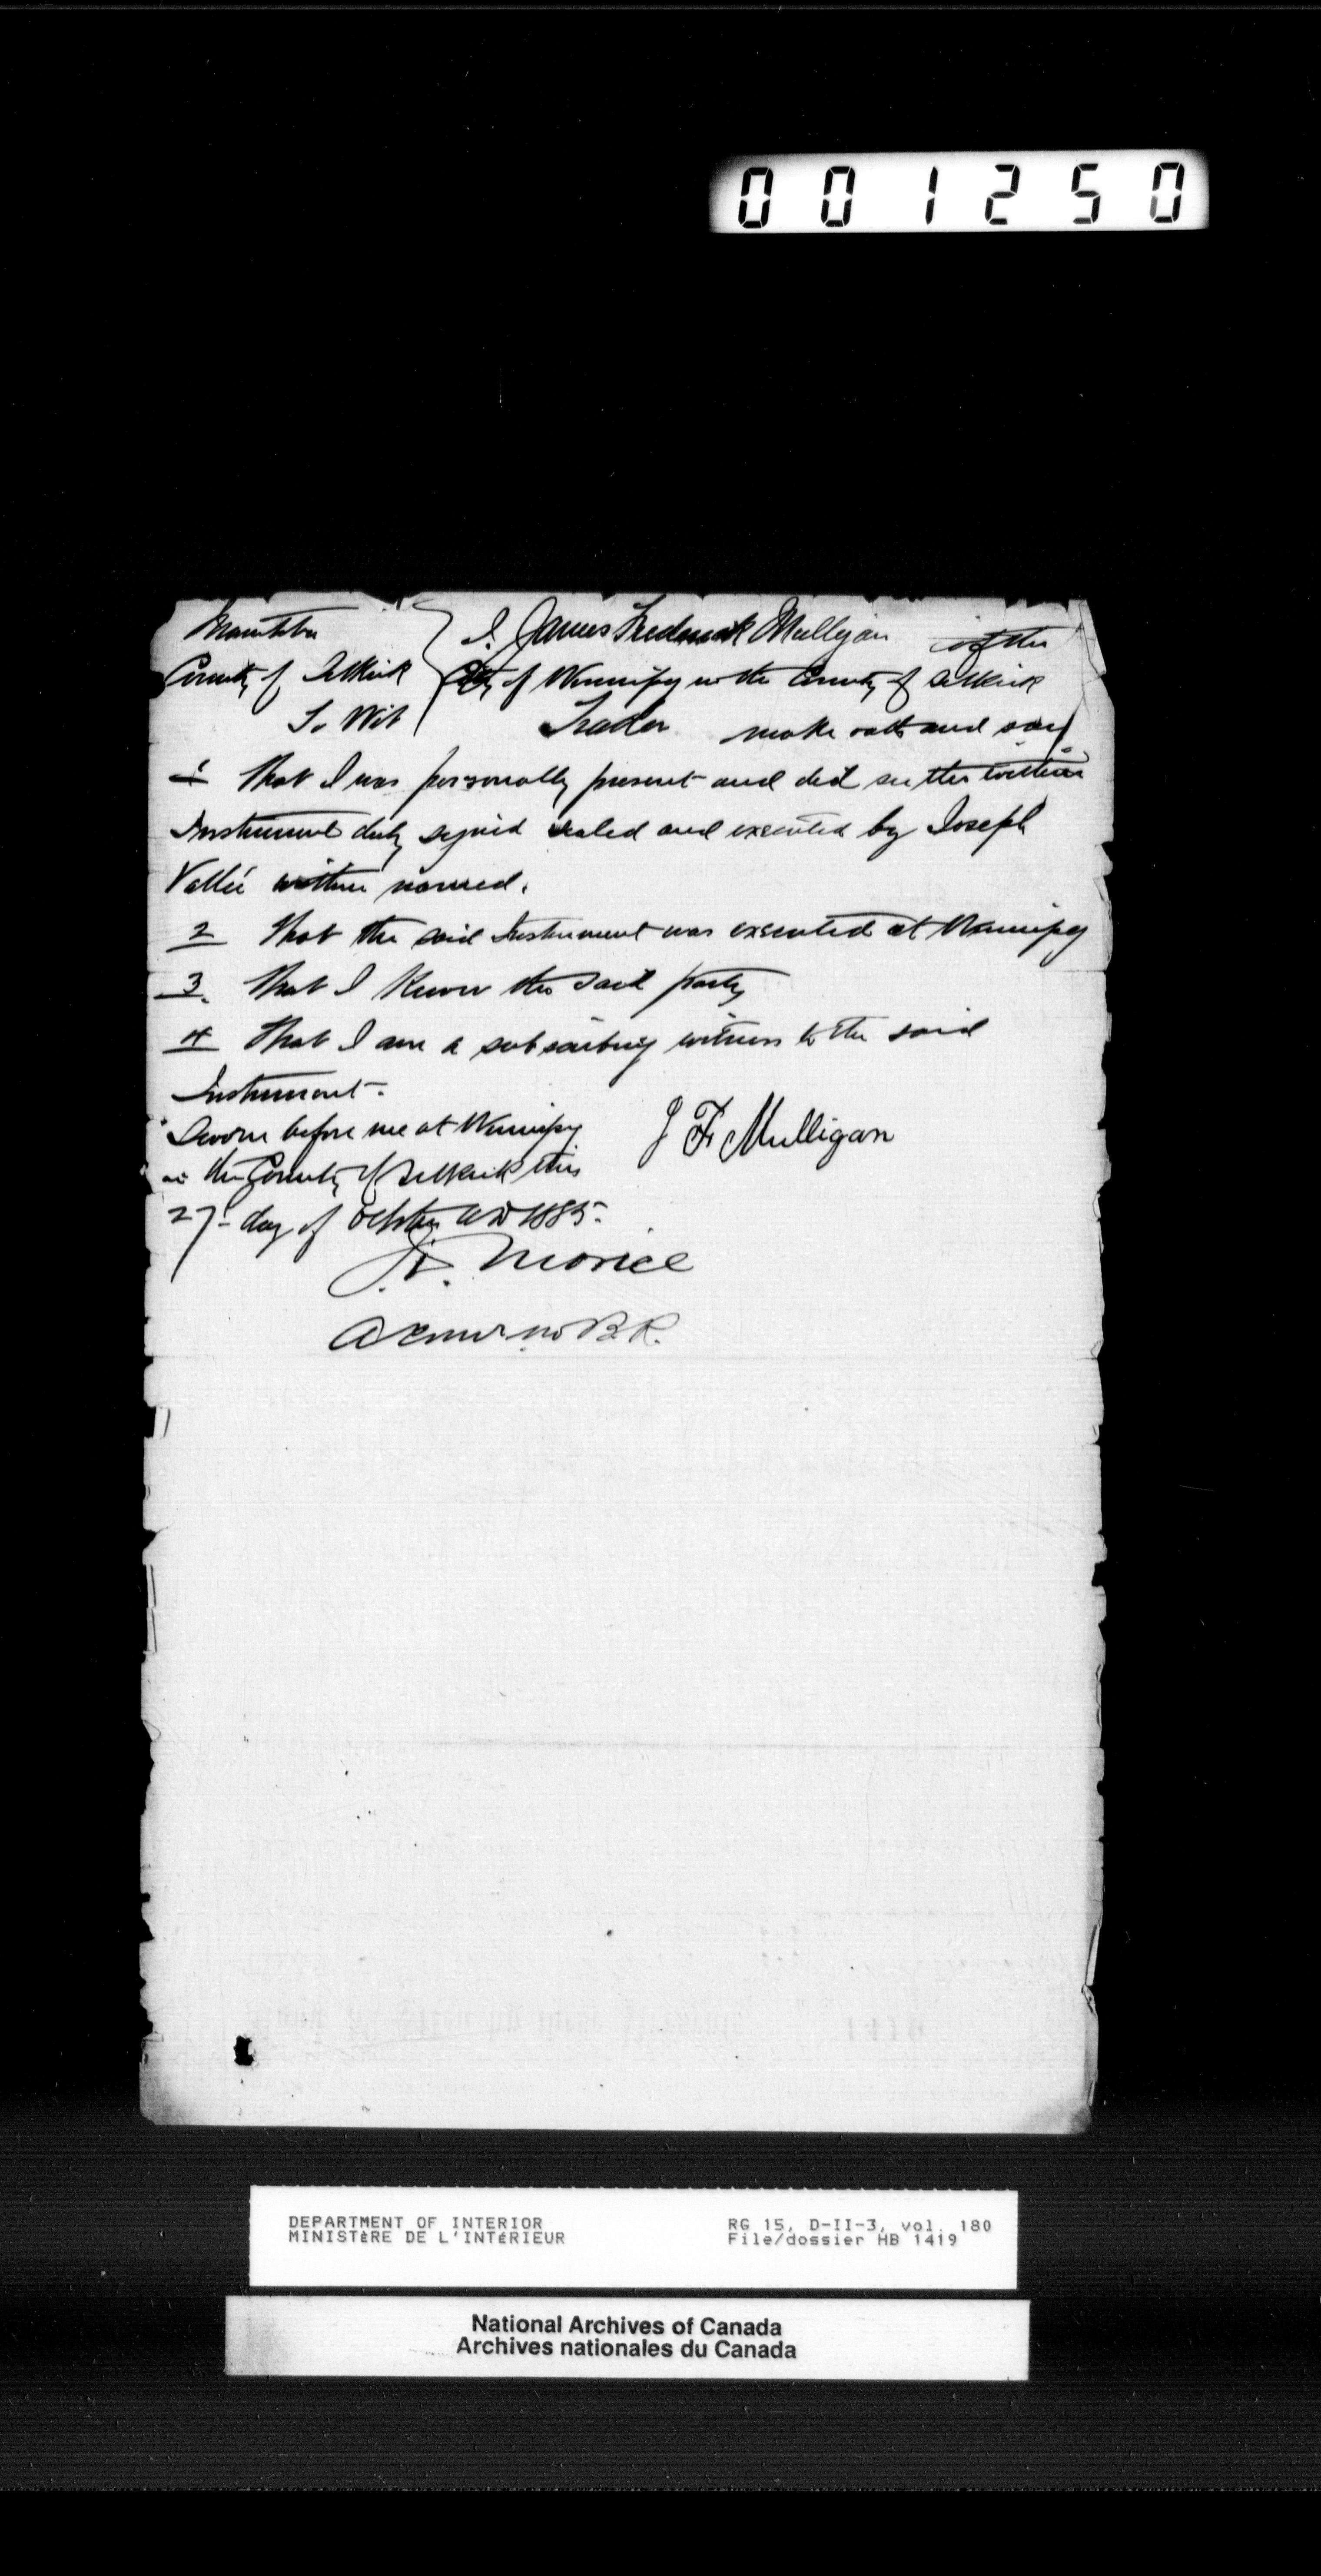 001250
Manitoba
County of Selkirk
To Wit
I, James Frederick Mulligan of the
City of Winnipeg in the County of Selkirk
Trader make oath and say
1 That I was personally present and did see the within
Instrument duly signed sealed and executed by Joseph
Vallée within named.
2 That the said Instrument was executed at Winnipeg
3. That I know the said party
4 That I am a subscribing witness to the said
Instrument.
Sworn before me at Winnipeg
in the County of Selkirk this
27 day of October AD 1885.
J F Mulligan
Morice
A Comr in B.R.
DEPARTMENT OF INTERIOR
MINISTÈRE DE L'INTÉRIEUR
RG 15, D-II-3, vol. 180
File/dossier HB 1419
National Archives of Canada
Archives nationales du Canada